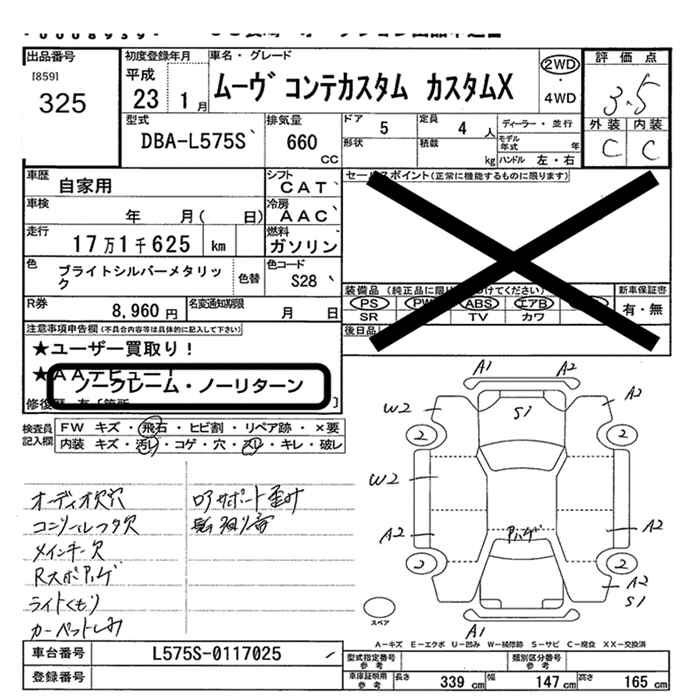 出品番号 初度登録年月 車名・グレード 評価点
[859] 平成 ムーヴ コンテカスタム カスタムX 2WD
325 23 1月 4WD 3.5
型式 排気量 ドア 定員 ディーラー・並行 外装 内装
DBA-L575S 660 CC 5 4人 モデル年式 年 C C
形状 積載 kg ハンドル 左・右
車歴 自家用 シフト CAT セールスポイント(正常に機能するものに限ります)
車検 年 月( 日) 冷房 AAC
走行 17万1千625 km 燃料 ガソリン
色 ブライトシルバーメタリック 色替 色コード S28
装備品 (純正品に限り つけてください) 新車保証書
PS PW ABS エアB 有・無
SR TV カワ
R券 8,960円 名変通知期限 月 日
後日品
注意事項申告欄(不具合内容等は具体的に記入して下さい)
★ユーザー買取り!
★AAデビュー!
ノークレーム・ノーリターン
修復歴 有 [箇所 ]
検査員記入欄 FW キズ・飛石・ヒビ割・リペア跡・×要
内装 キズ・汚レ・コゲ・穴・スレ・キレ・破レ
オーディオ欠穴
コンソールフタ欠
メインキー欠
Rスポハゲ
ライトくもり
カーペットしみ
ロアサポート歪み
A1 A2
W2 S1 A2
2 2
W2
A2 ハゲ A2
2 2
A2
S1
A1
スペア
A-キズ E-エクボ U-凹み W-補修跡 S-サビ C-腐食 XX-交換済
車台番号 L575S-0117025
登録番号
型式指定番号 参考 類別区分番号 参考
車庫証明用 参考 長さ 339cm 幅 147cm 高さ 165cm